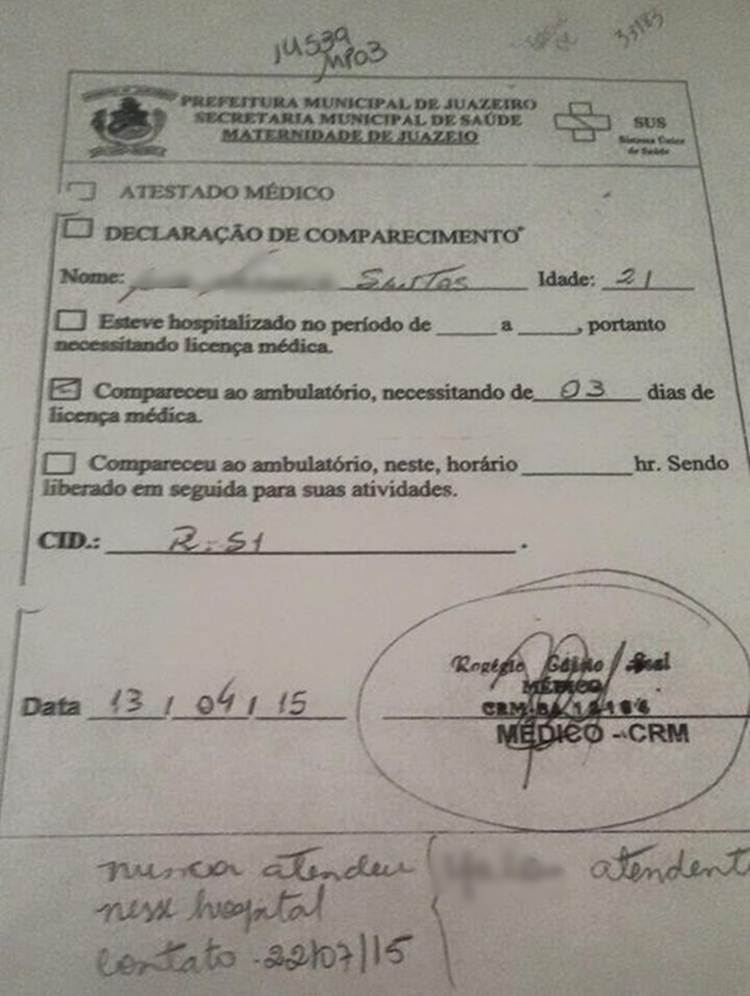 14539
MP03
33185
PREFEITURA MUNICIPAL DE JUAZEIRO
SECRETARIA MUNICIPAL DE SAÚDE
MATERNIDADE DE JUAZEIO
SUS
Sistema Único
de Saúde
ATESTADO MÉDICO
DECLARAÇÃO DE COMPARECIMENTO*
Nome: Santos Idade: 21
Esteve hospitalizado no período de _____ a _____, portanto
necessitando licença médica.
Compareceu ao ambulatório, necessitando de 03 dias de
licença médica.
Compareceu ao ambulatório, neste, horário _________ hr. Sendo
liberado em seguida para suas atividades.
CID.: R.51.
Rogério
MÉDICO
Data 13/04/15
CRM-BA
MÉDICO - CRM
nunca atendeu
atendent
nesse hospital
contato - 22/07/15